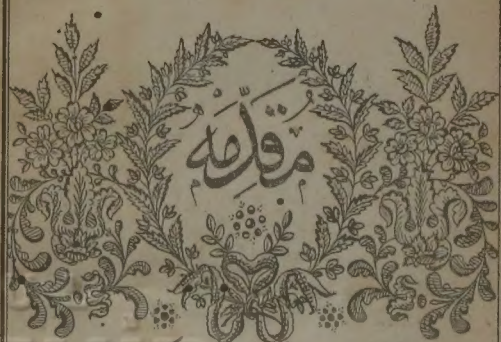 مُقَدِّمَه